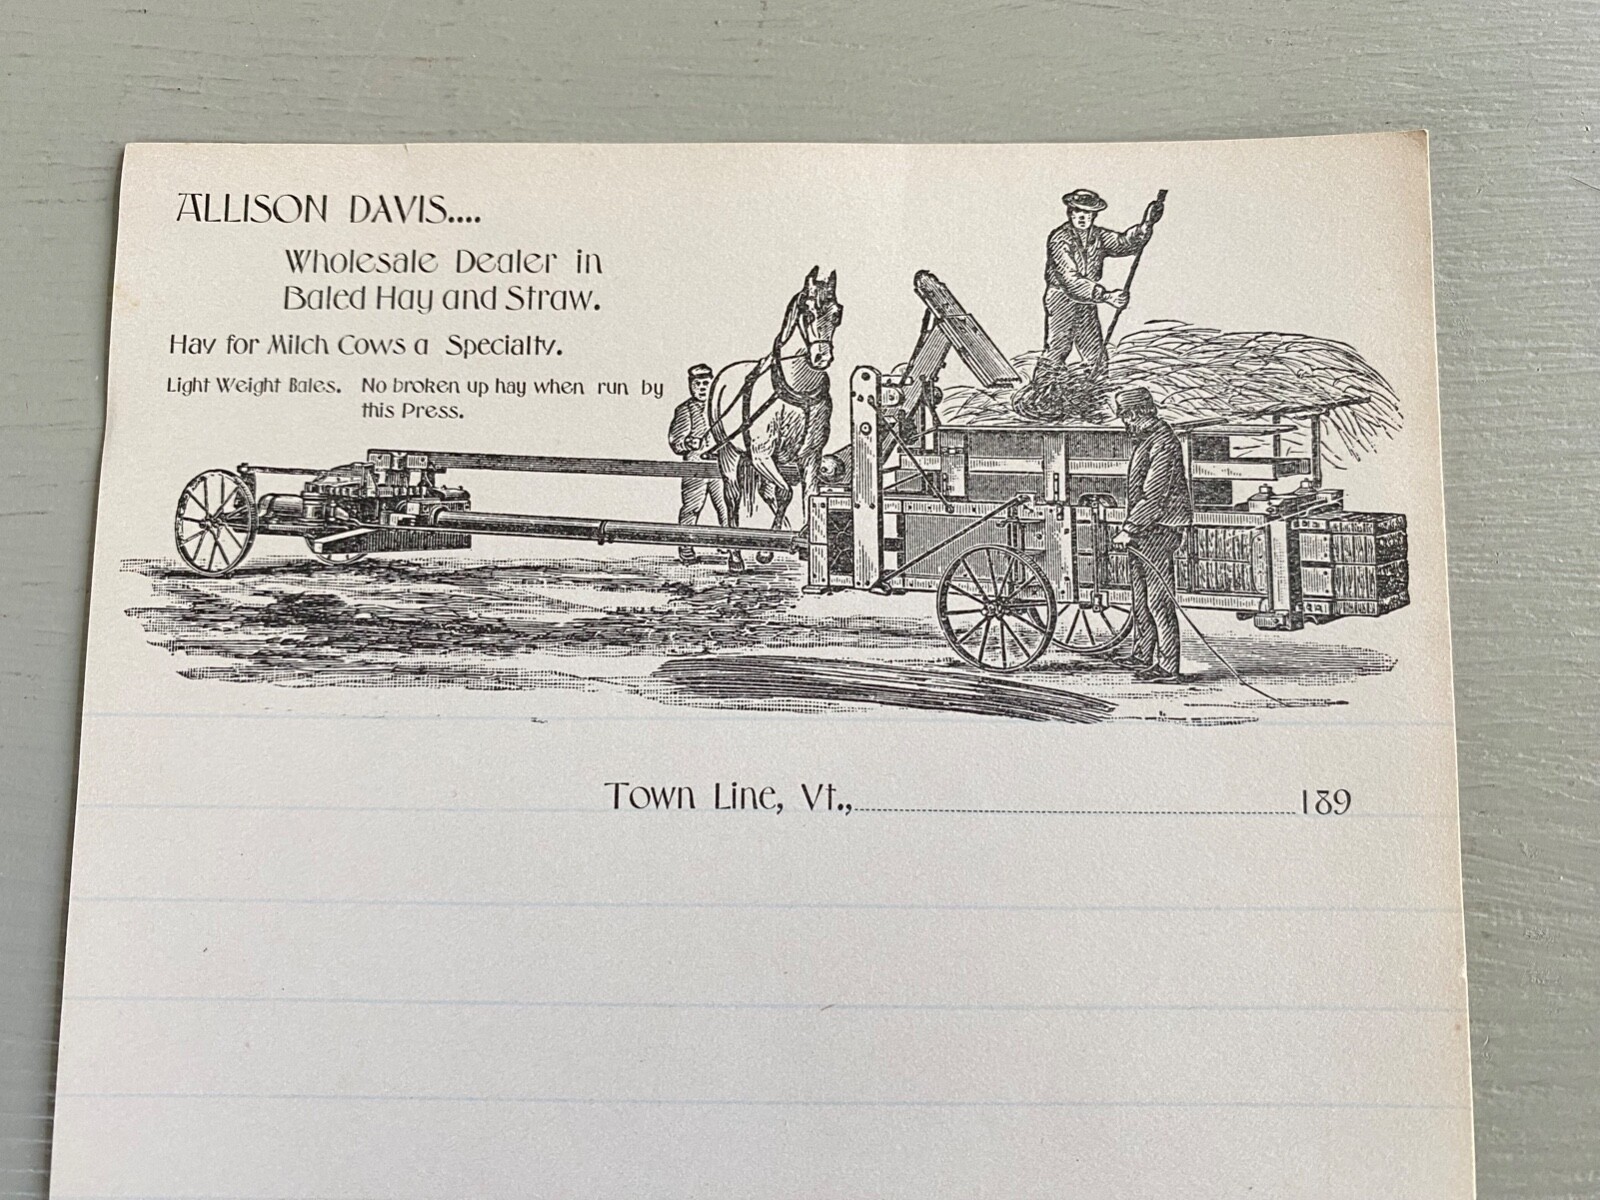 ALLISON DAVIS....
Wholesale Dealer in
Baled Hay and Straw.
Hay for Milch Cows a Specialty.
Light Weight Bales. No broken up hay when run by
this Press.
Town Line, Vt.,..............................189